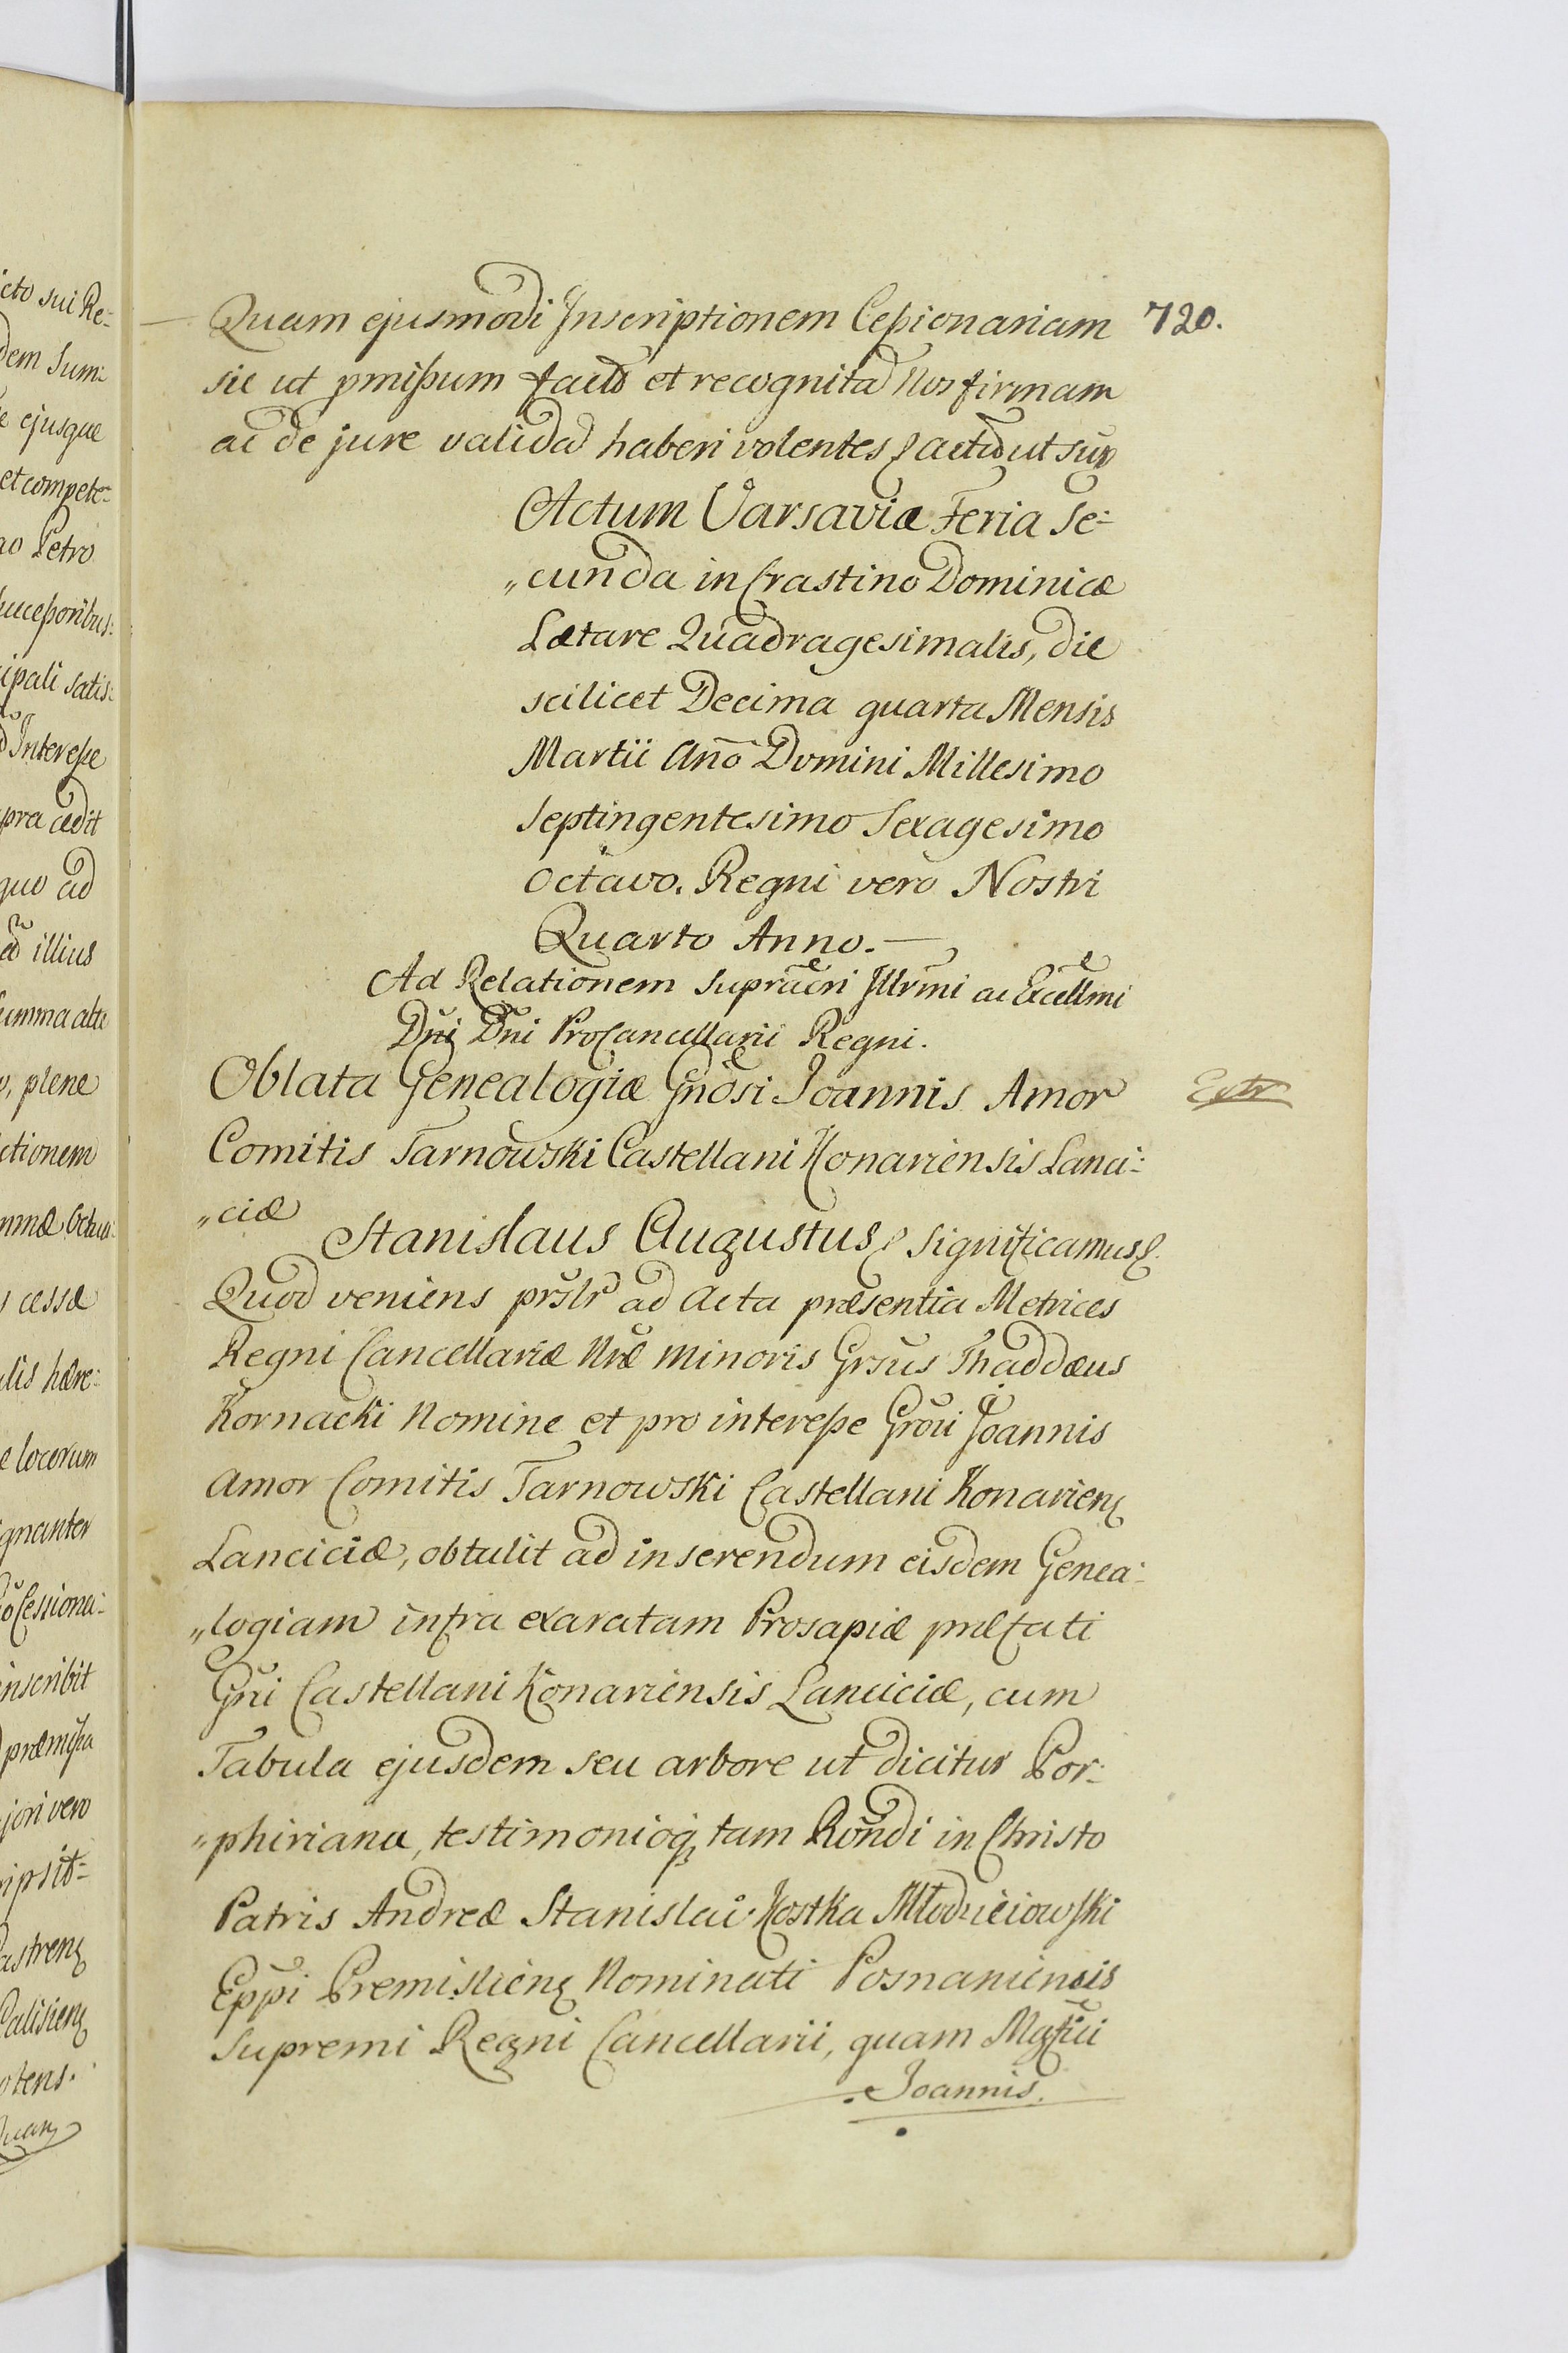 Quam ejusmodi Inscriptionem Cessionariam 720.
sic ut pmissum et recognita Nos firmam
ac de jure valida haberi volentes actu ut sup
Actum Varsaviæ Feria Se=
„cunda in Crastino Dominicæ
Lætare Quadragesimalis, die
scilicet Decima quarta Mensis
Martii Anō Domini Millesimo
Septingentesimo Sexagesimo
Octavo. Regni vero Nostri
Quarto Anno.—
Ad Relationem Illrmi ac Excellmi
Dni Dni ProCancellarii Regni.
Oblata Genealogiæ Gnosi Joannis Amor Extr
Comitis Tarnowski Castellani Konariensis Lanci=
„ciæ
Stanislaus Augustus significamus
Quod veniens prslr ad Acta præsentia Metrices
Regni Cancellariæ Nræ minoris Grsus Thaddæus
Kornacki Nomine et pro interesse Groü Joannis
Amor Comitis Tarnowski Castellani Konarien
Lanciciæ, obtulit ad inserendum eisdem Genea=
„logiam infra exaratam Prosapiæ præfati
Gni Castellani Konariensis Lanciciæ, cum
Tabula ejusdem seu arbore ut dicitur Por=
„phiriana, testimonioq tam Rōndi in Christo
Patris Andreæ Stanislai Kostka Młodzieiowski
Eppi Premislien Nominati Posnaniensis
Supremi Regni Cancellarii, quam Mgfici
Joannis.
cto sui Re=
dem Sum=
e ejusque
et compete=
no Petro
uccessoribus
cipali satis=
Interesse
pra cedit
quo ad
illius
summa
o, plene
ctionem
cessæ
lis hære=
e locorum
gnanter
Cessiona=
inscribit
præmissa
jori vero
ripsit=
astren
Calisien
otens.
Quam